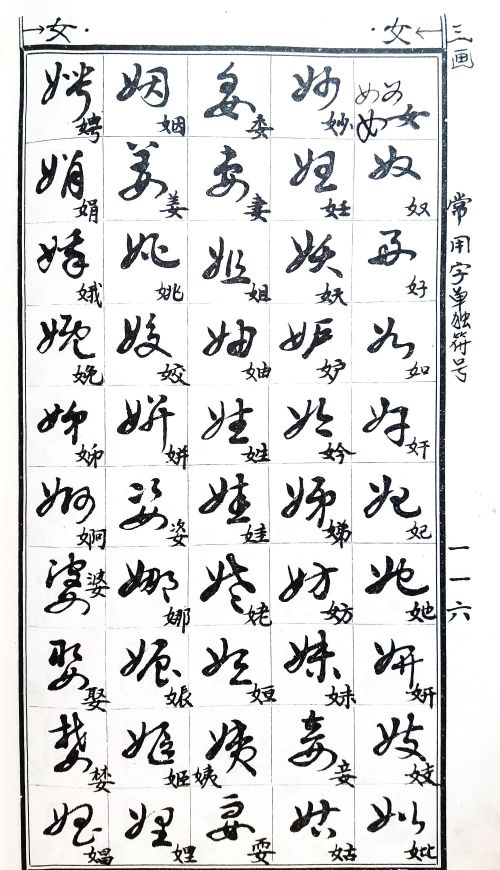 三画
常用字单独符号
一一六
→女· ·女←
女奴好如奸妃她妍妓妣
妙妊妖妒妗娣妨妹妾姑
委妻姐妯姓娃姥姮姨耍
姻姜姚姣姘姿娜娠姬娌
娉娟娥娩姊婀婆娶婪娼